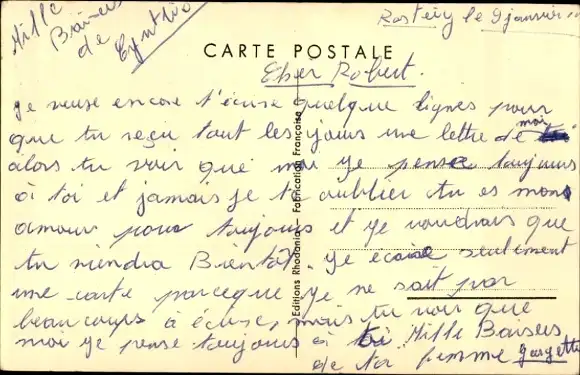 Mille
Baisers
de
Cynthia
Rosteig le 9 janvier
CARTE POSTALE
Cher Robert.
je veuse encore t'écrire quelque lignes pour
que tu reçu tout les jours une lettre de moi
alors tu voir que moi je pense toujours
à toi et jamais je te oublier tu es mon
amour pour toujours et je voudrais que
tu viendra Bientôt. Je écrise seulement
une carte parceque je ne sait par
beaucoups à écrise, mais tu voir que
moi je pense toujours à toi. Mille Baisers
de ta femme
Editions Rhodania - Fabrication Française